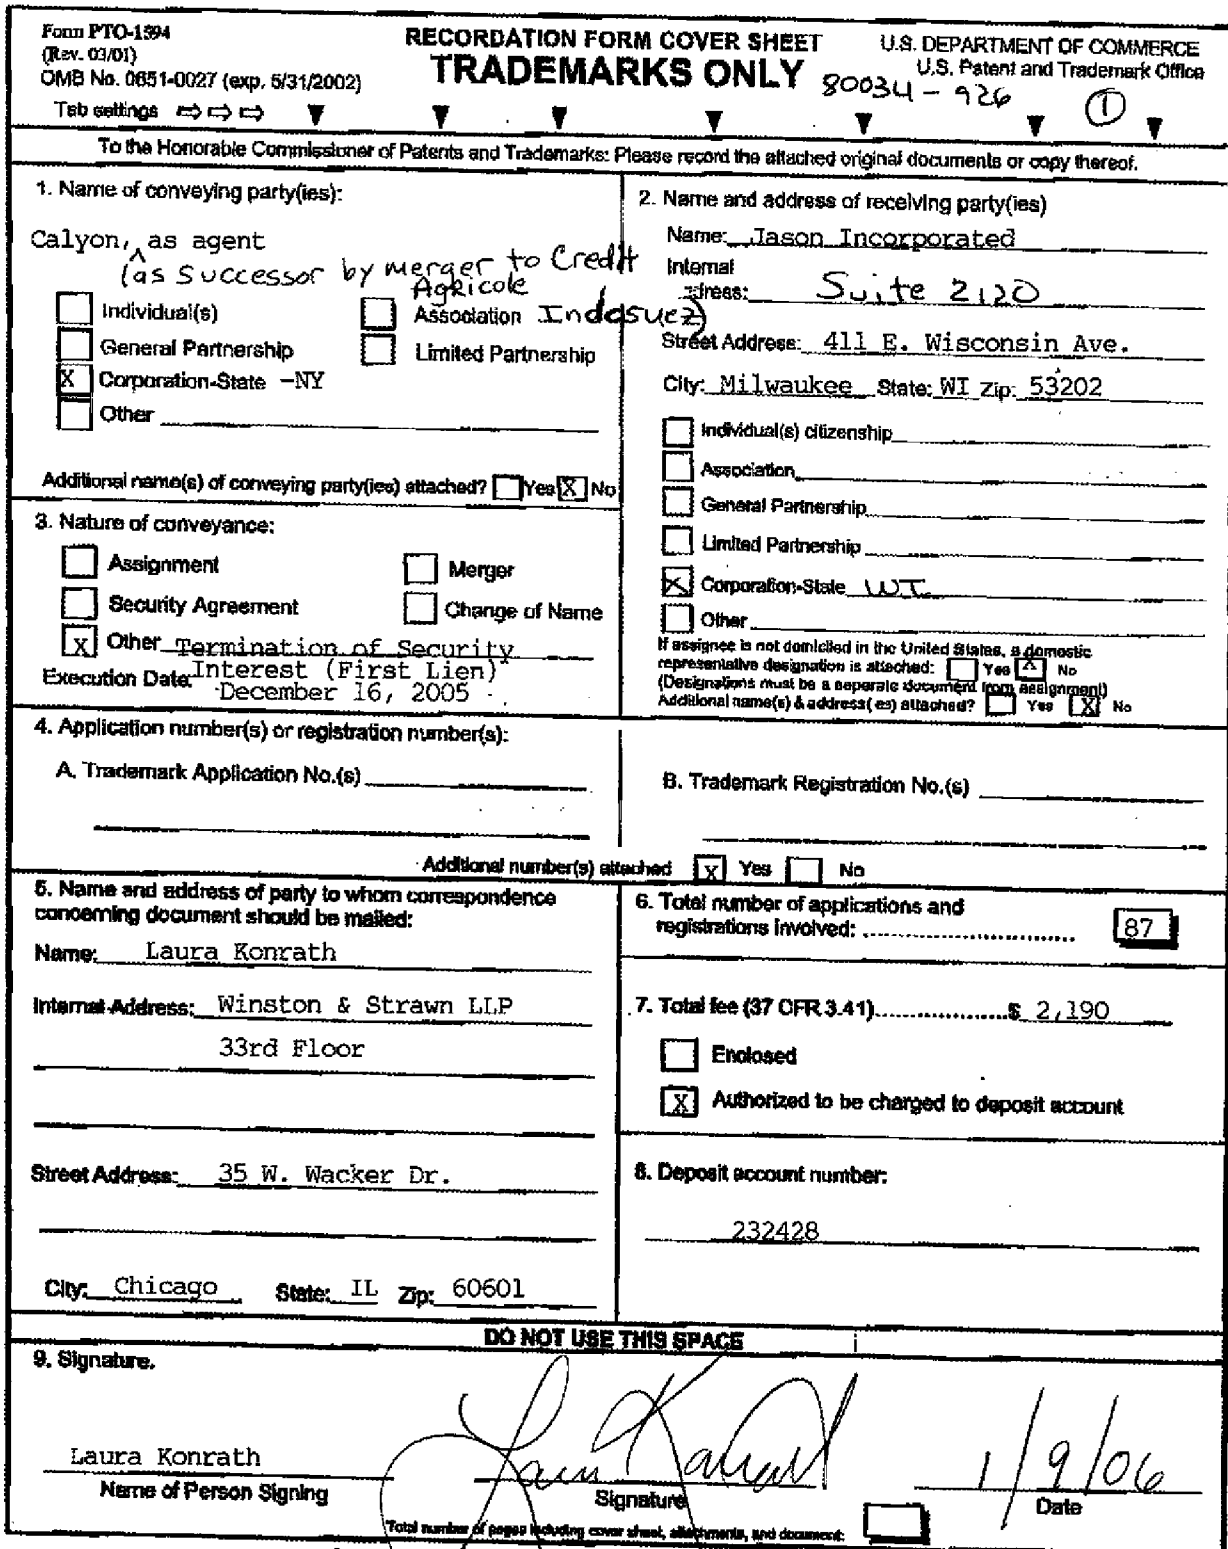 Form PTO-1594
(Rev. 03/01)
OMB No. 0651-0027 (exp. 5/31/2002)
Tab settings ⇨ ⇨ ⇨ ▼ ▼ ▼ ▼ ▼ ▼ ▼
RECORDATION FORM COVER SHEET
TRADEMARKS ONLY
U.S. DEPARTMENT OF COMMERCE
U.S. Patent and Trademark Office
80034-926
1
To the Honorable Commissioner of Patents and Trademarks: Please record the attached original documents or copy thereof.
1. Name of conveying party(ies):
Calyon, ^ as agent
(as Successor by merger to Credit
Agricole
Indosuez)
Individual(s)
Association
General Partnership
Limited Partnership
X Corporation-State -NY
Other
Additional name(s) of conveying party(ies) attached? Yes X No
2. Name and address of receiving party(ies)
Name: Jason Incorporated
Internal
Address: Suite 2120
Street Address: 411 E. Wisconsin Ave.
City: Milwaukee State: WI Zip: 53202
Individual(s) citizenship
Association
General Partnership
Limited Partnership
X Corporation-State WI
Other
If assignee is not domiciled in the United States, a domestic
representative designation is attached: Yes X No
(Designations must be a separate document from assignment)
Additional name(s) & address(es) attached? Yes X No
3. Nature of conveyance:
Assignment
Merger
Security Agreement
Change of Name
X Other Termination of Security
Interest (First Lien)
Execution Date: December 16, 2005
4. Application number(s) or registration number(s):
A. Trademark Application No.(s)
B. Trademark Registration No.(s)
Additional number(s) attached X Yes No
5. Name and address of party to whom correspondence
concerning document should be mailed:
Name: Laura Konrath
Internal Address: Winston & Strawn LLP
33rd Floor
Street Address: 35 W. Wacker Dr.
City: Chicago State: IL Zip: 60601
6. Total number of applications and
registrations involved: 87
7. Total fee (37 CFR 3.41) $ 2,190
Enclosed
X Authorized to be charged to deposit account
8. Deposit account number:
232428
DO NOT USE THIS SPACE
9. Signature.
Laura Konrath
Name of Person Signing
Laura Konrath
Signature
1/9/06
Date
Total number of pages including cover sheet, attachments, and document: